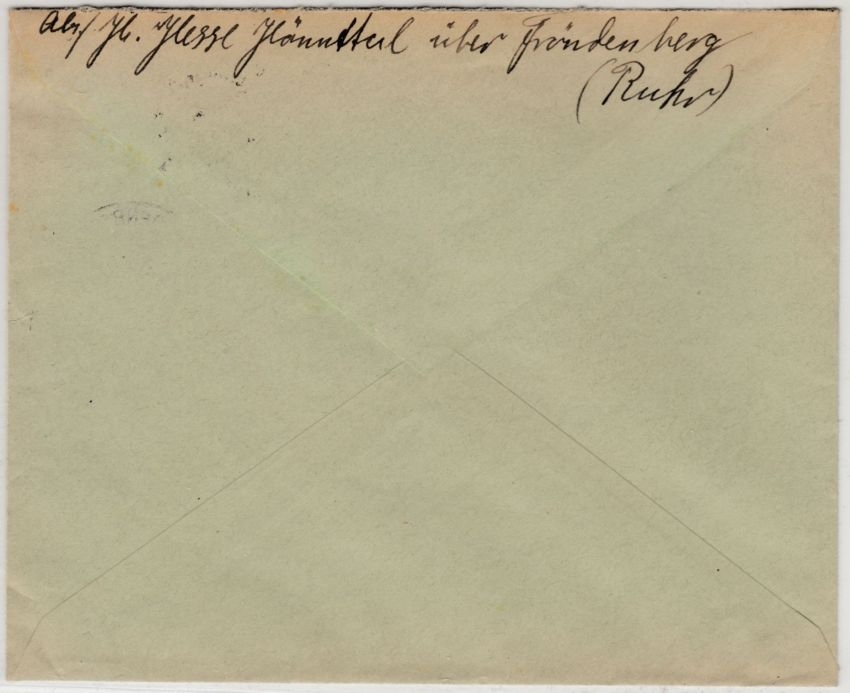 Abs/ H. Hesse Hönnetal über Fröndenberg
(Ruhr)